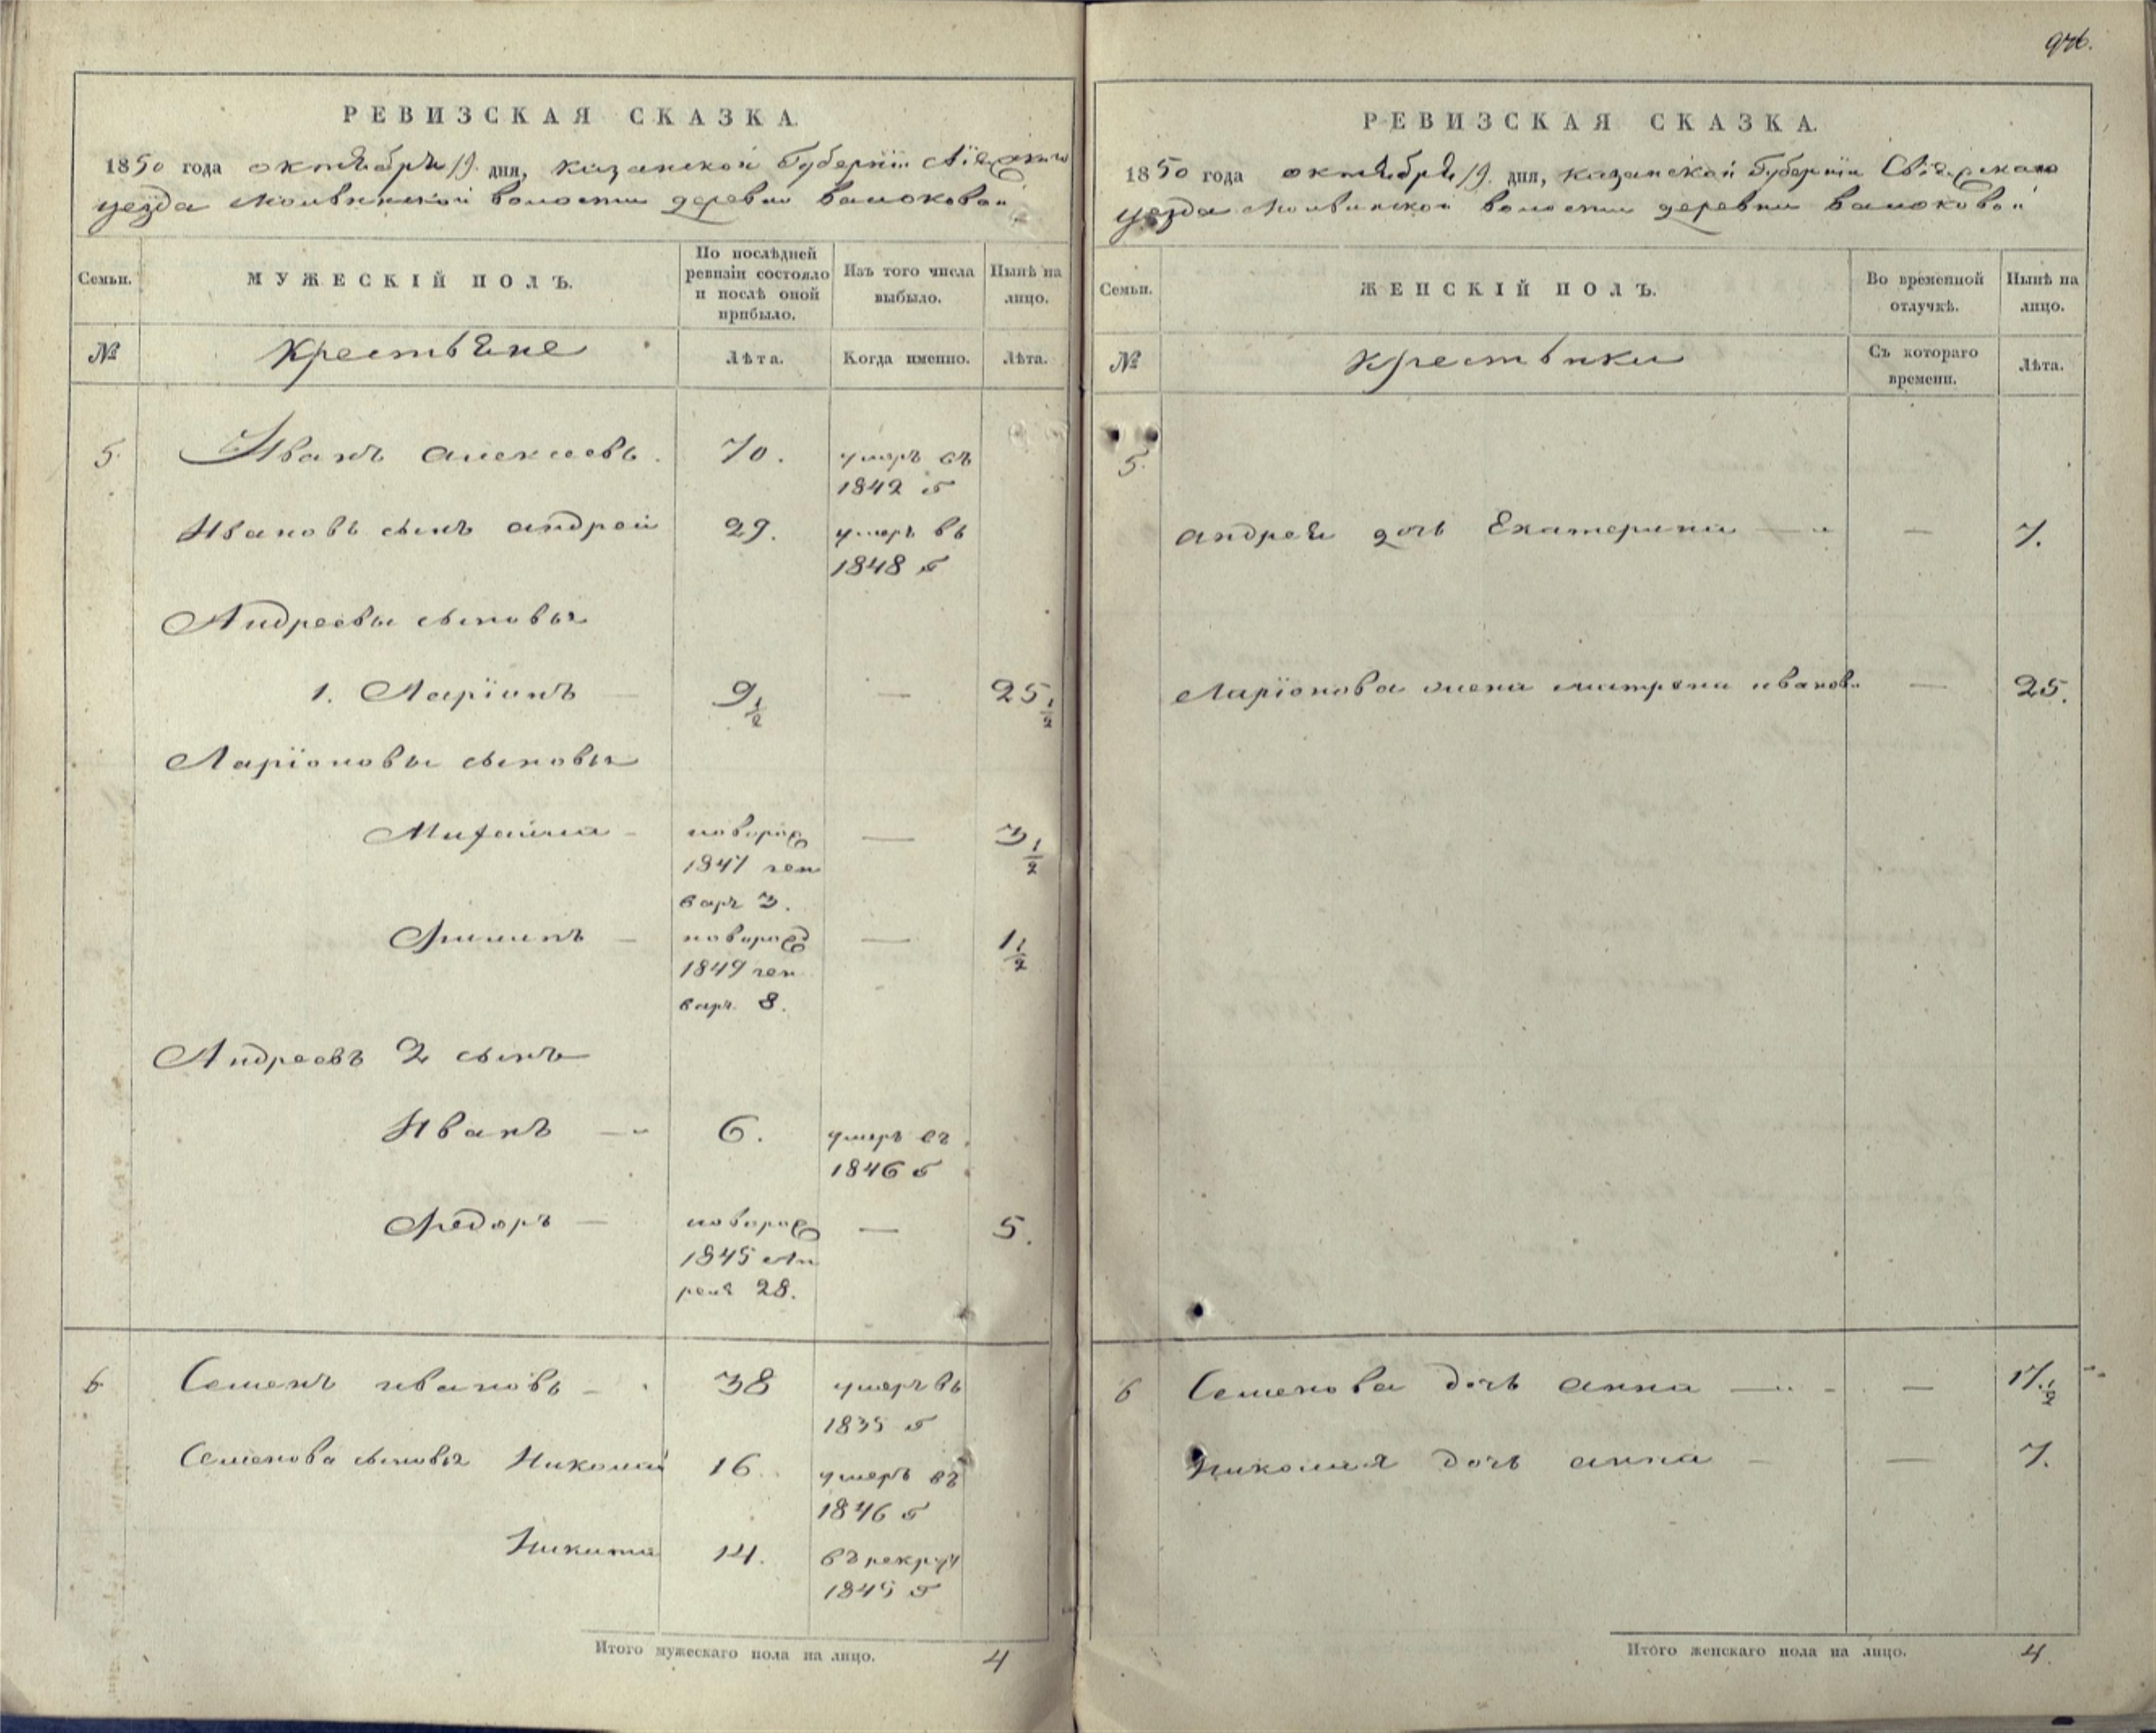 976.
РЕВИЗСКАЯ СКАЗКА.
1850 года октября 19. дня, казанской Губерніи Свіяжскаго
уезда Молвинской волости деревни
Семьи.
МУЖЕСКІЙ ПОЛЪ.
По послѣдней ревизіи состояло и послѣ оной прибыло.
Изъ того числа выбыло.
Нынѣ на лицо.
№
крестьяне
Лѣта.
Когда именно.
Лѣта.
5. Иванъ алексеевъ. 70. умеръ въ
1842 г
Ивановъ сынъ андрей 29. умеръ въ
1848 г
Андреевы сыновья
1. Ларіонъ — 9 1/2 — 25 1/2
Ларіоновы сыновья
Михайла - новорож — 3 1/2
1847 ген
варя 3.
Филипъ — новорожд — 1 1/2
1849 ген
варя 8.
Андреевъ 2 сынъ
Иванъ — 6. умеръ въ
1846 г
Федоръ — новорож — 5.
1845 Ап
реля 28.
6 Семенъ ивановъ — 38 умеръ въ
1835 г
Семенова сыновья Николай 16. умеръ въ
1846 г
Никита 14. въ рекрут
1845 г
Итого мужескаго пола на лицо. 4
РЕВИЗСКАЯ СКАЗКА.
1850 года октября 19. дня, казанской Губерніи Свіяжскаго
уезда Молвинской волости деревни
Семьи.
ЖЕНСКІЙ ПОЛЪ.
Во временной отлучкѣ.
Нынѣ на лицо.
№
крестьянки
Съ котораго времени.
Лѣта.
5.
андрея дочь Екатерина — — 7.
Ларіонова жена матрена иванов. — 25.
6 Семенова дочь анна — — 17. 1/2
Николая дочь анна — — 7.
Итого женскаго пола на лицо. 4.